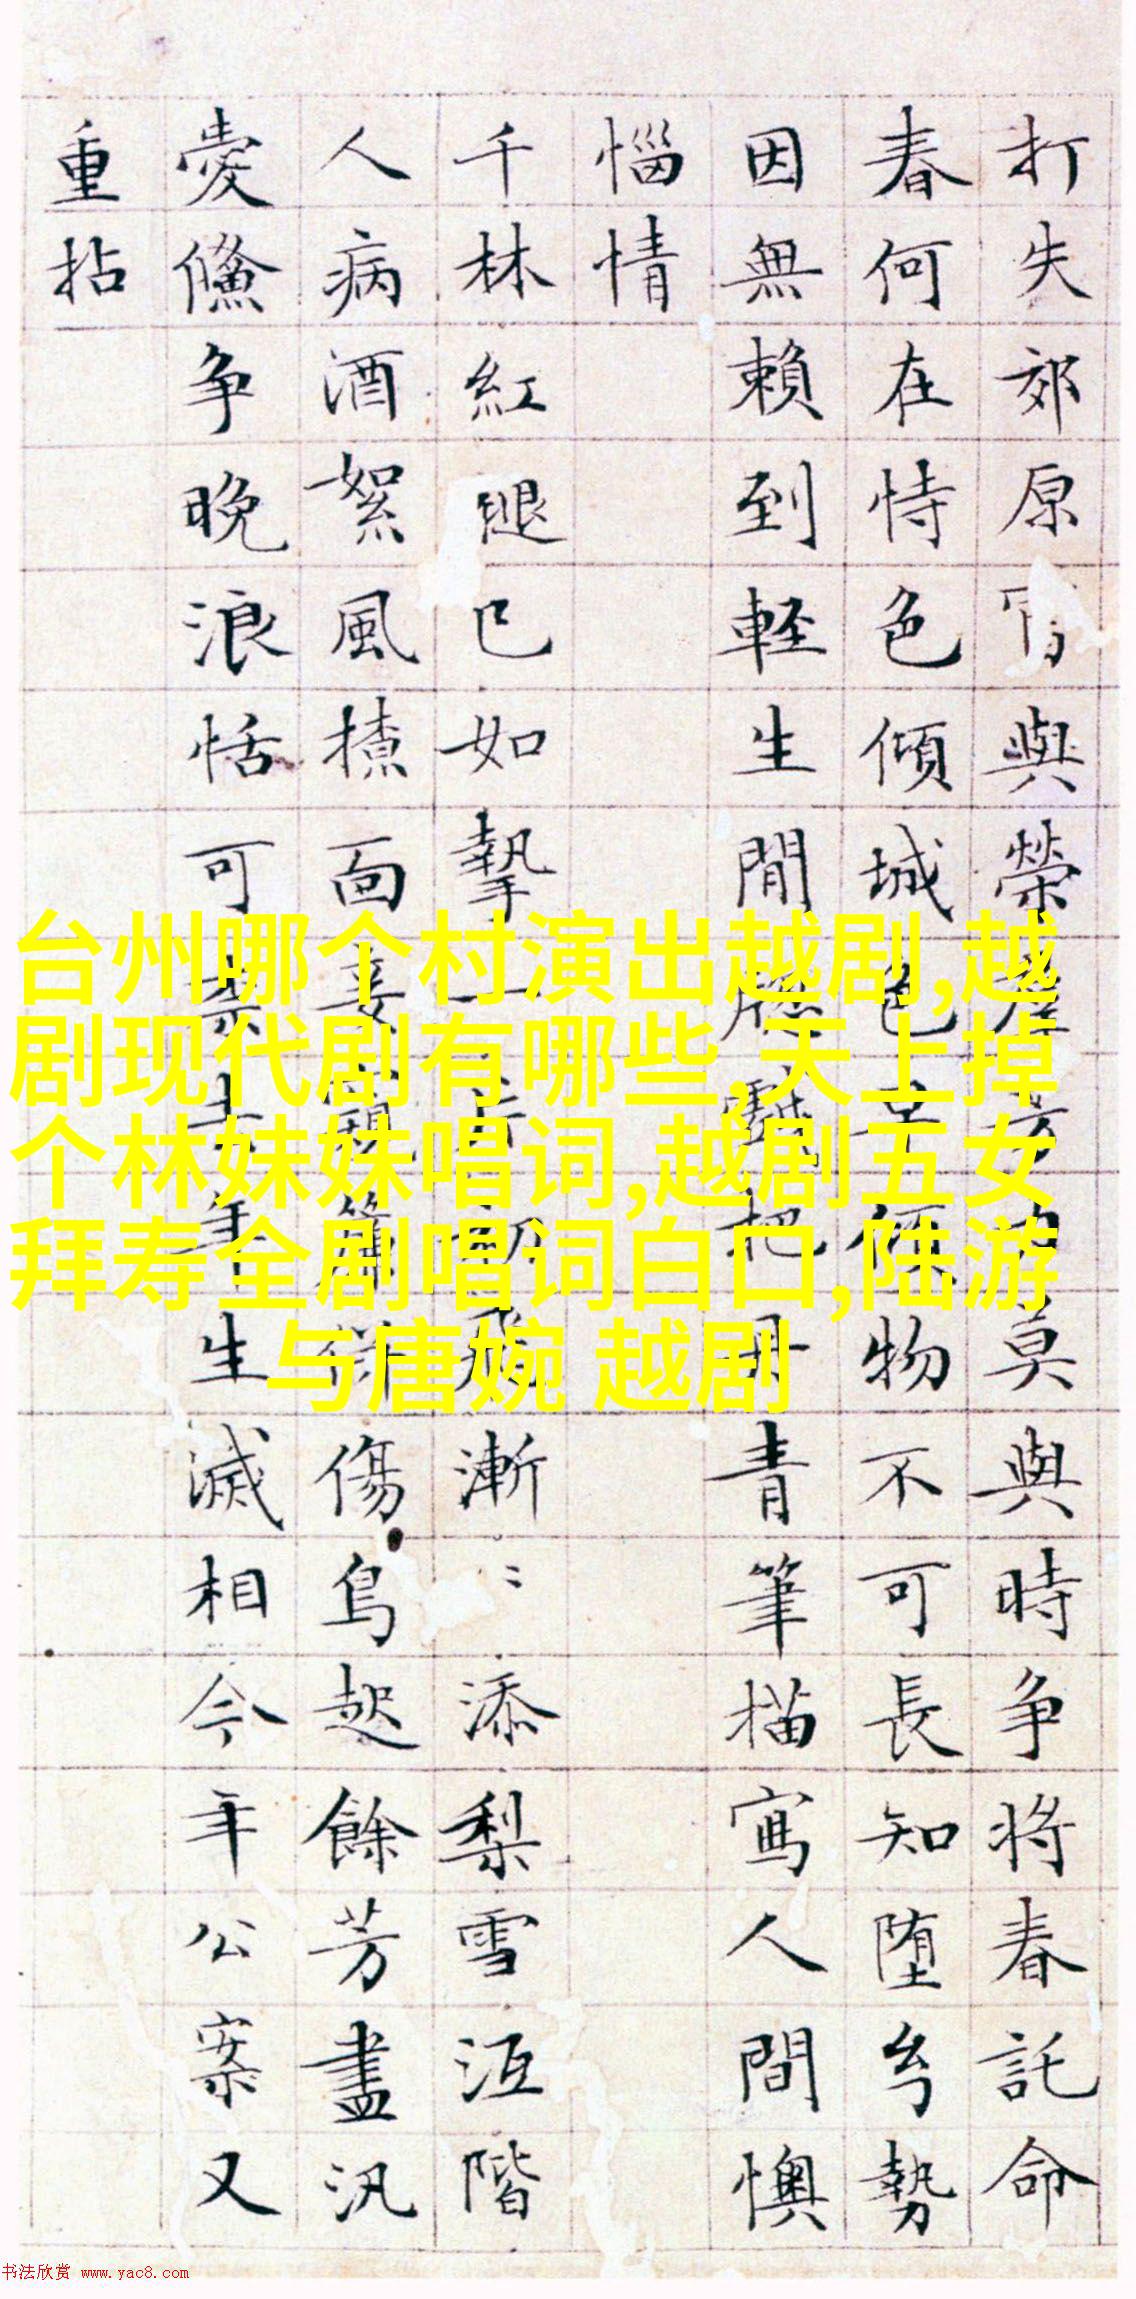 打失郊原與榮 莫與時争将春託命
春何在恃色傾城色 物不可長知堕勢
因無賴到輕生閒 把丹青筆描寫人間懊
惱情
千林紅腿已如摯一片 漸〻添梨雪沍階
人病酒絮風揸面 傷鳥起餘芳盡汎
愛 争晚浪恬可 生滅相今年公案又
重拈
台州哪个村演出越剧,越
剧现代剧有哪些,天上掉
个林妹妹唱词,越剧五女
拜寿全剧唱词白口,陆游
与唐婉 越剧
书法欣赏 www.yac8.com